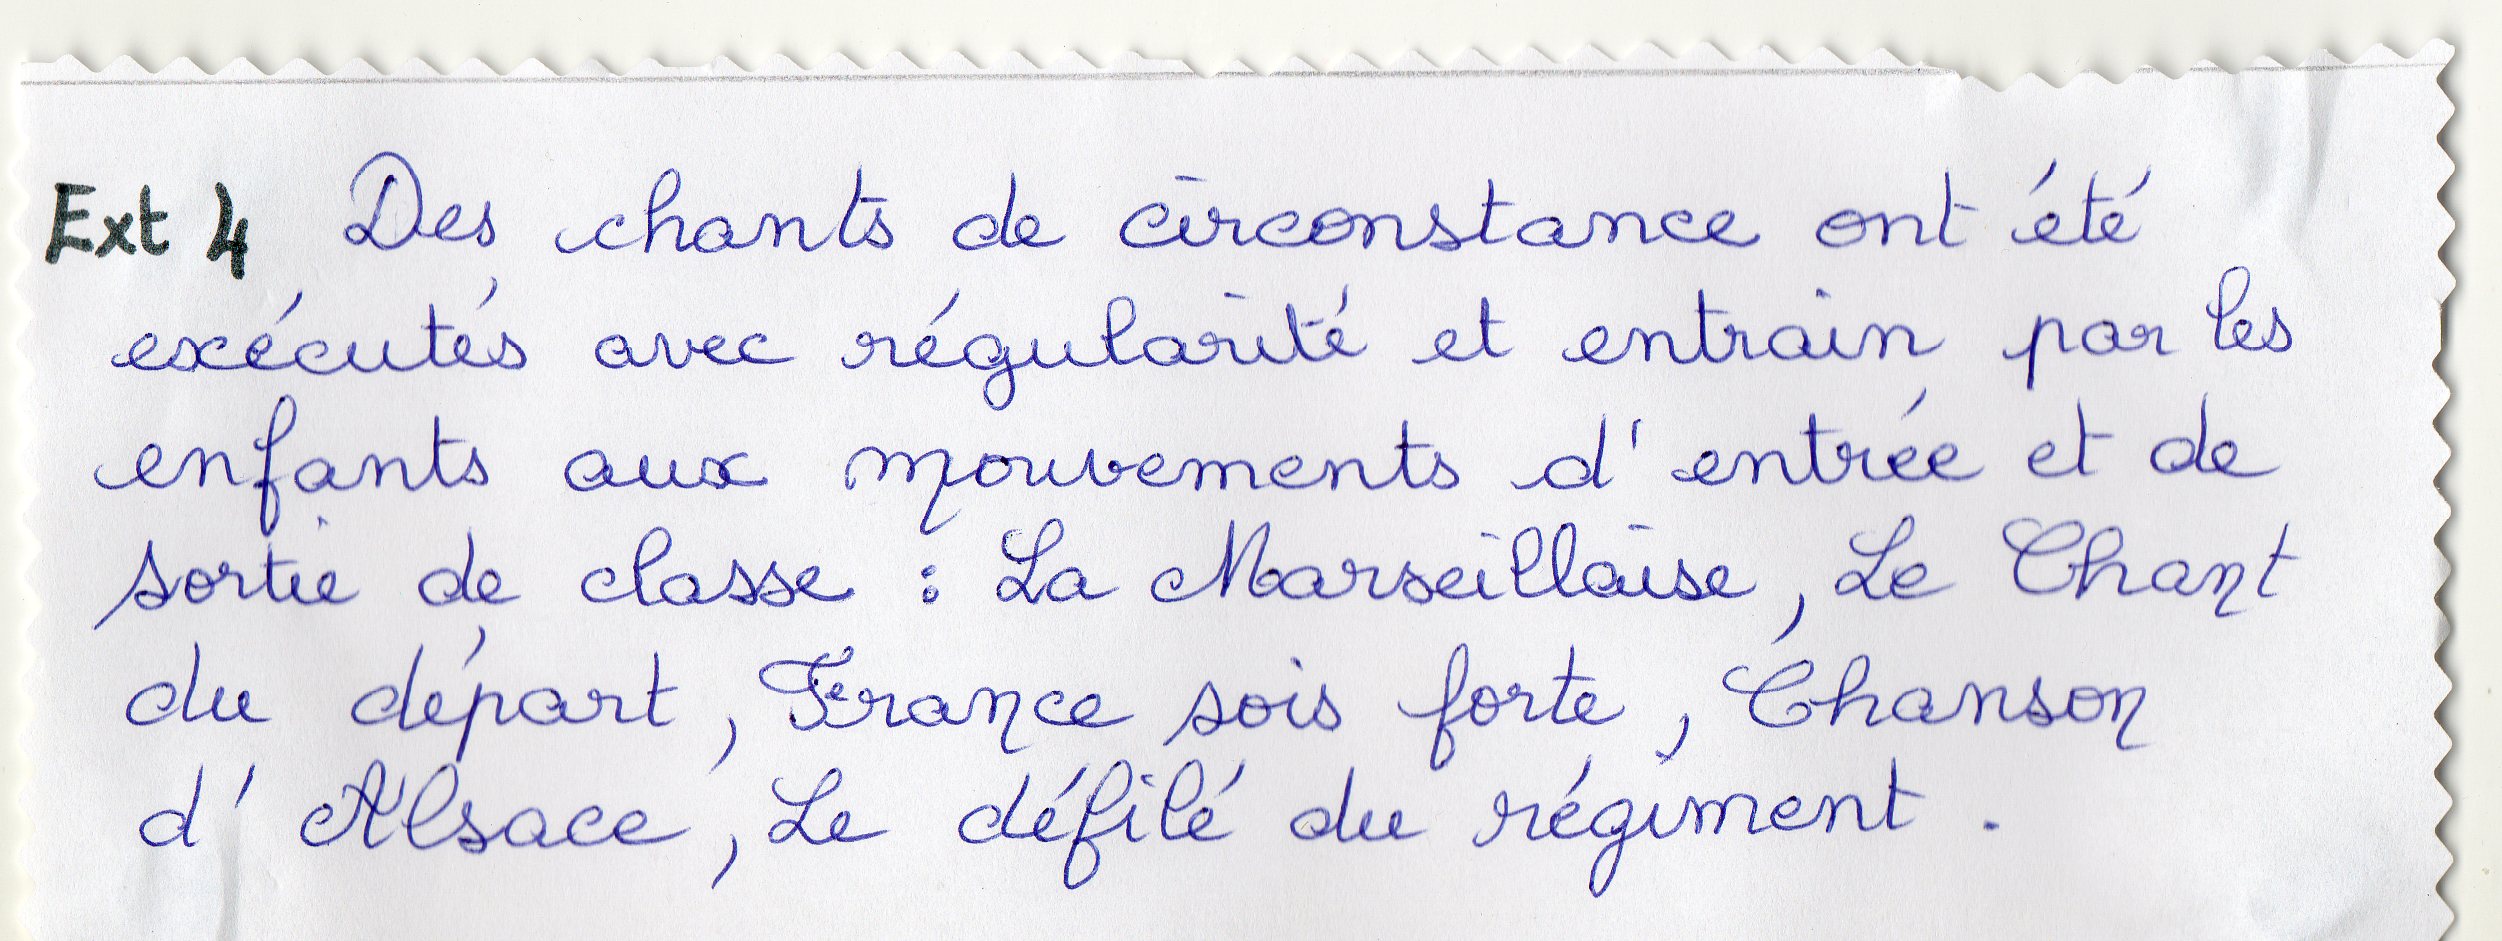 Ext 4 Des chants de circonstance ont été
exécutés avec régularité et entrain par les
enfants aux mouvements d'entrée et de
sortie de classe : La Marseillaise, Le Chant
du départ, France sois forte, Chanson
d'Alsace, Le défilé du régiment.